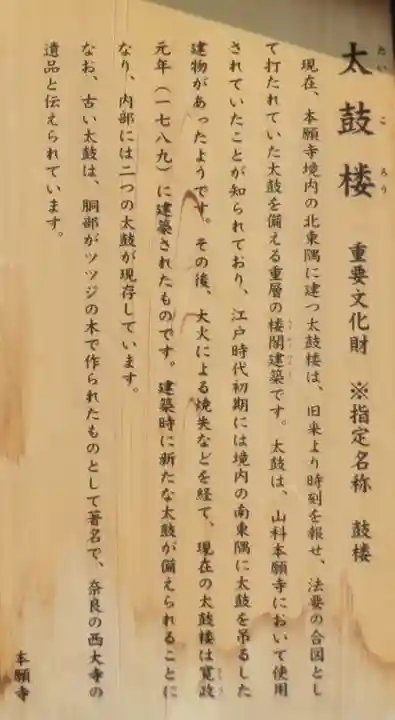 太鼓楼 重要文化財 ※指定名称 鼓楼
たいころう
現在、本願寺境内の北東隅に建つ太鼓楼は、旧来より時刻を報せ、法要の合図とし
て打たれていた太鼓を備える重層の楼閣建築です。太鼓は、山科本願寺において使用
されていたことが知られており、江戸時代初期には境内の南東隅に太鼓を吊るした
建物があったようです。その後、大火による焼失などを経て、現在の太鼓楼は寛政
元年（一七八九）に建築されたものです。建築時に新たな太鼓が備えられることに
なり、内部には二つの太鼓が現存しています。
なお、古い太鼓は、胴部がツツジの木で作られたものとして著名で、奈良の西大寺の
遺品と伝えられています。
本願寺